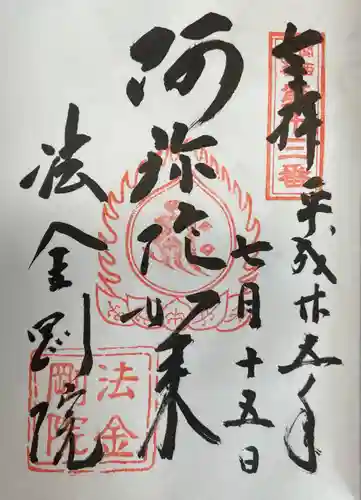 奉拝
十三番
平成廿五年
七月十五日
阿弥陀如来
法金剛院
法金
剛院